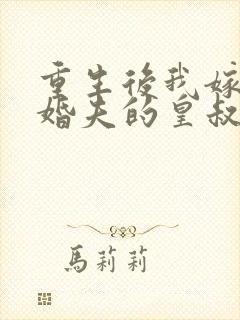 重生後我嫁
婚夫的皇叔
馬莉莉